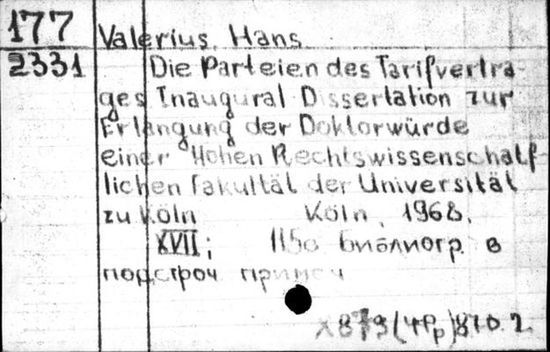 177
2331
Valerius, Hans
Die Parteien des Tarifvertra-
ges Inaugural Dissertation zur
Erlangung der Doktorwürde
einer Hohen Rechtswissenschaft-
lichen Fakultät der Universität
zu Köln Köln, 1968.
XVII; 115с Библиогр. в
подстроч примеч